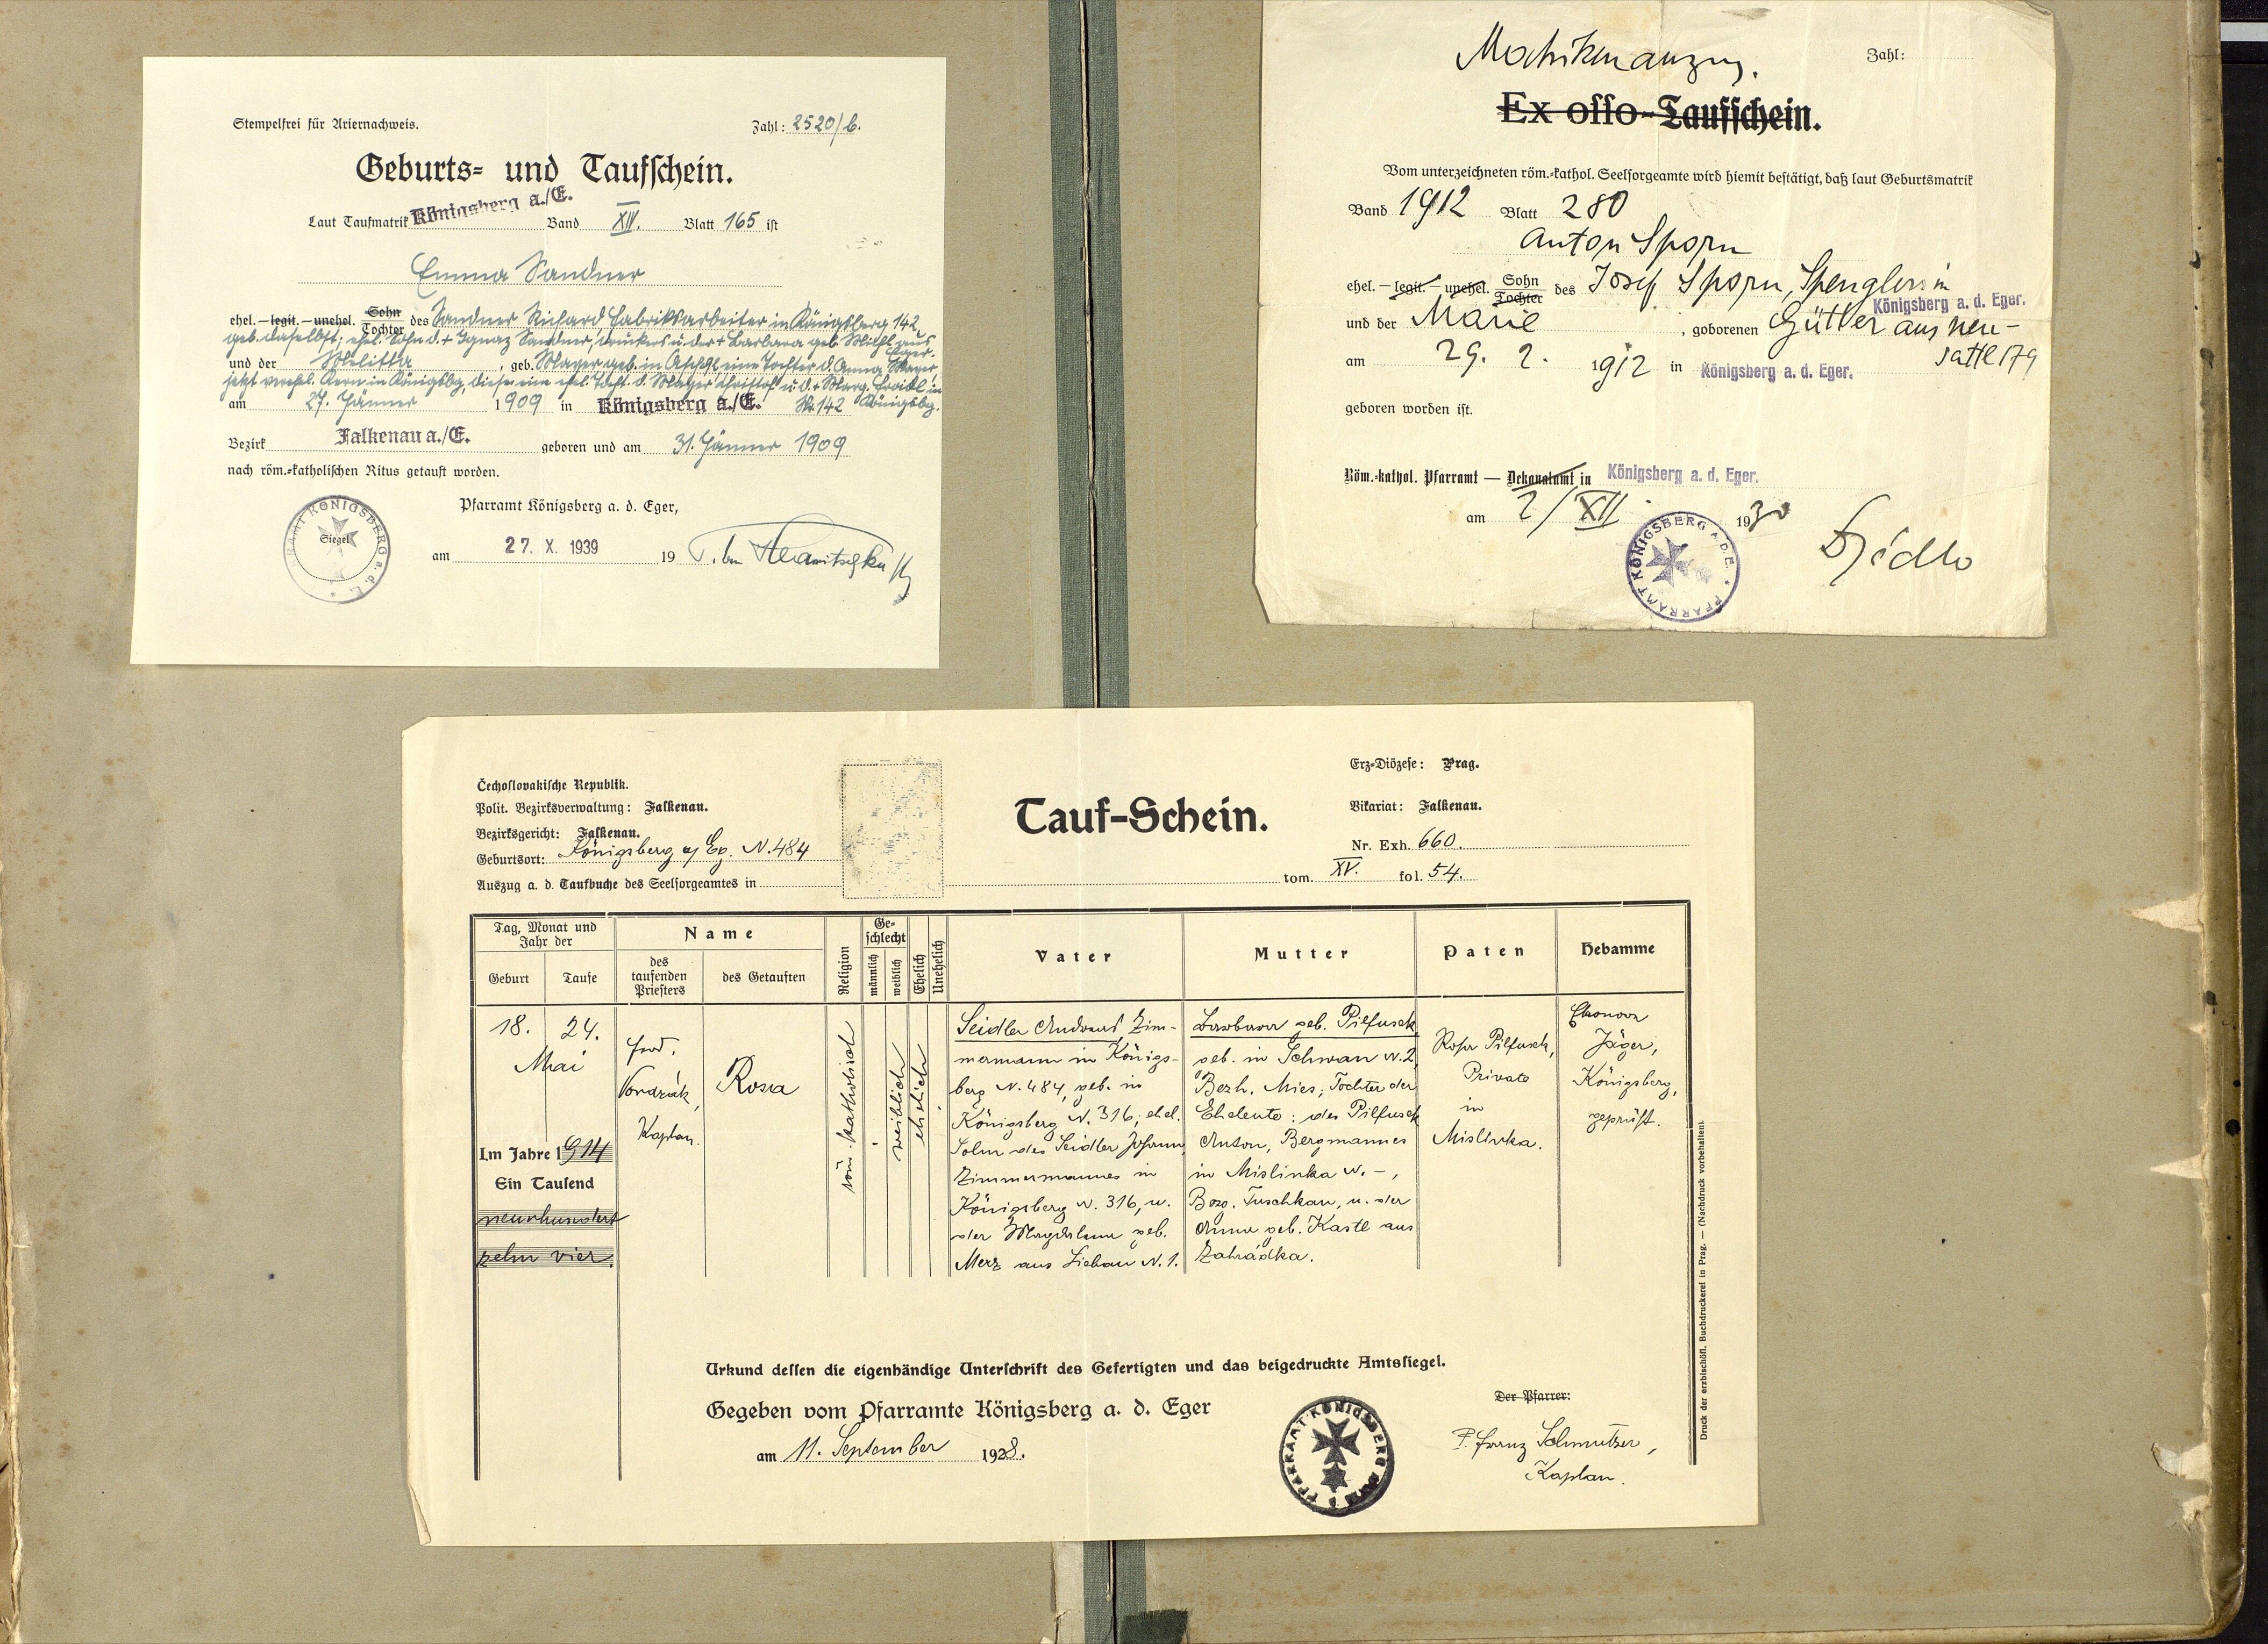 Stempelfrei für Ariernachweis.
Zahl: 2520/6.
Geburts- und Taufschein.
Laut Taufmatrik Königsberg a./E. Band XIV. Blatt 165 ist
Emma Sandner
ehel. — legit. — unehel. Sohn Tochter des Sandner Richard, Fabriksarbeiter in Königsberg 142,
geb. daselbst; ehel. Sohn d. + Ignaz Sandner, Druckers u. der + Barbara geb. Michl aus Eger.
und der Melitta, geb. Mayer geb. in Aschgl, eine Tochter d. Anna Mayer,
jetzt verehel. Kern in Königsbg, diese eine ehel. Tocht. d. Mayer Christof u. d. + Marg. Froidl in
am 27. Jänner 1909 in Königsberg a./E. Nr. 142 Königsbg.
Bezirk Falkenau a./E. geboren und am 31. Jänner 1909
nach röm.-katholischen Ritus getauft worden.
Pfarramt Königsberg a. d. Eger,
Siegel
am 27. X. 1939 19
Matrikenauszug.
Zahl:
Ex offo-Taufschein.
Vom unterzeichneten röm.-kathol. Seelsorgeamte wird hiemit bestätigt, daß laut Geburtsmatrik
Band 1912 Blatt 280
Anton Sporn
ehel. — legit. — unehel. Sohn Tochter des Josef Sporn, Spenglers in
Königsberg a. d. Eger.
und der Marie, geborenen Gütler aus Neu-
am 29. 2. 1912 in Königsberg a. d. Eger. sattl 179
geboren worden ist.
Röm.-kathol. Pfarramt — Dekanalamt in Königsberg a. d. Eger.
am 2/XII. 1930
PFARRAMT KÖNIGSBERG A.D.E.
Čechoslovakische Republik.
Polit. Bezirksverwaltung: Falkenau.
Bezirksgericht: Falkenau.
Geburtsort: Königsberg a/Eg. N. 484
Auszug a. d. Taufbuche des Seelsorgeamtes in
Tauf-Schein.
Erz-Diözese: Prag.
Vikariat: Falkenau.
Nr. Exh. 660.
tom. XV. fol. 54.
Tag, Monat und Jahr der
Geburt Taufe
Name
des taufenden Priesters
des Getauften
Religion
Geschlecht
männlich weiblich
Ehelich Unehelich
Vater
Mutter
Paten
Hebamme
18. 24.
Mai
Im Jahre 1914
Ein Tausend
neunhundert
zehn vier.
Ferd.
Vondrák,
Kaplan.
Rosia
röm. katholisch
weiblich
ehelich
Seidler Andreas Zim-
mermann in Königs-
berg N. 484, geb. in
Königsberg N. 316, ehel.
Sohn des Seidler Johann
Zimmermannes in
Königsberg N. 316, u.
der Magdalena geb.
Merz aus Liebau N. 1.
Barbara geb. Pilfusek
geb. in Schwan N. 2,
Bezh. Mies; Tochter der
Eheleute: des Pilfusek
Anton, Bergmannes
in Mislinka N. –,
Bzg. Tuschkau, u. der
Anna geb. Kastl aus
Zahrádka.
Rosa Pilfusek,
Private
in
Mislinka.
Eleonora
Jäger,
Königsberg,
geprüft.
Urkund dessen die eigenhändige Unterschrift des Gefertigten und das beigedruckte Amtssiegel.
Gegeben vom Pfarramte Königsberg a. d. Eger
am 11. September 1928.
Der Pfarrer:
P. Franz Schmutzer,
Kaplan.
Druck der erzbischöfl. Buchdruckerei in Prag. — (Nachdruck vorbehalten).